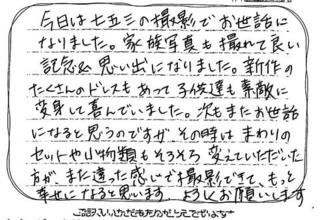 今日は七五三の撮影でお世話に
なりました。家族写真も撮れて良い
記念&思い出になりました。新作の
たくさんのドレスもあって子供達も素敵に
変身して喜んでいました。次もまたお世話
になると思うのですが、その時はまわりの
セットや小物類もそろそろ変えていただいた
方が、また違った感じで撮影できて、もっと
幸せになると思います よろしくお願いします